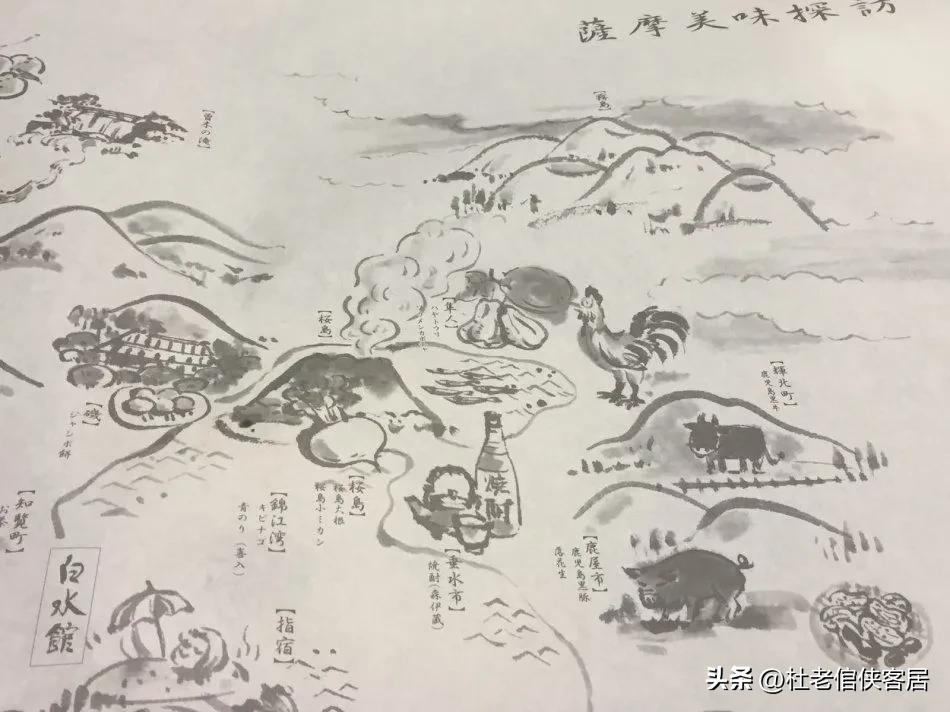 薩摩美味探訪
【曽木の滝】
【霧島】
【隼人】
ハヤトウリ
【桜島】
【輝北町】
鹿児島黒牛
【磯】
ジャンボ餅
【桜島】
桜島大根
桜島小ミカン
【錦江湾】
キビナゴ
青のり(喜入)
焼酎
【垂水市】
焼酎(森伊蔵)
【鹿屋市】
鹿児島黒豚
落花生
【知覧町】
お茶
白水館
【指宿】
头条 @杜老倌侠客居